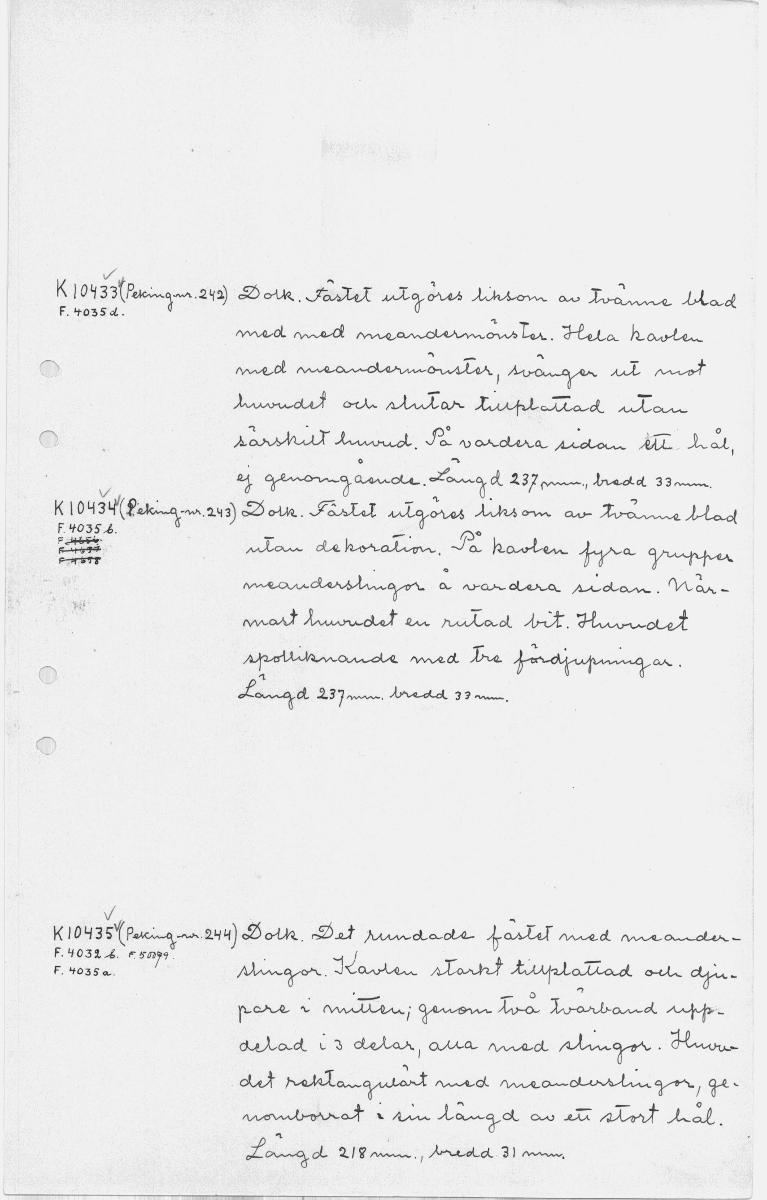 K 10433 (Peking-nr. 242) Dolk. Fästet utgöres liksom av tvänne blad
F. 4035 d. med med meandermönster. Hela kavlen
med meandermönster, svänger ut mot
huvudet och slutar tillplattad utan
särskilt huvud. På vardera sidan ett hål,
ej genomgående. Längd 237 mm., bredd 33 mm.
K 10434 (Peking-nr. 243) Dolk. Fästet utgöres liksom av tvänne blad
F. 4035 b. utan dekoration. På kavlen fyra grupper
meanderslingor å vardera sidan. När-
mast huvudet en rutad bit. Huvudet
spolliknande med tre fördjupningar.
Längd 237 mm. bredd 33 mm.
K 10435 (Peking-nr. 244) Dolk. Det rundade fästet med meander-
F. 4032 b. slingor. Kavlen starkt tillplattad och dju-
F. 4035 a. pare i mitten; genom två tvärband upp-
delad i 3 delar, alla med slingor. Huvu-
det rektangulärt med meanderslingor, ge-
nomborrat i sin längd av ett stort hål.
Längd 218 mm., bredd 31 mm.